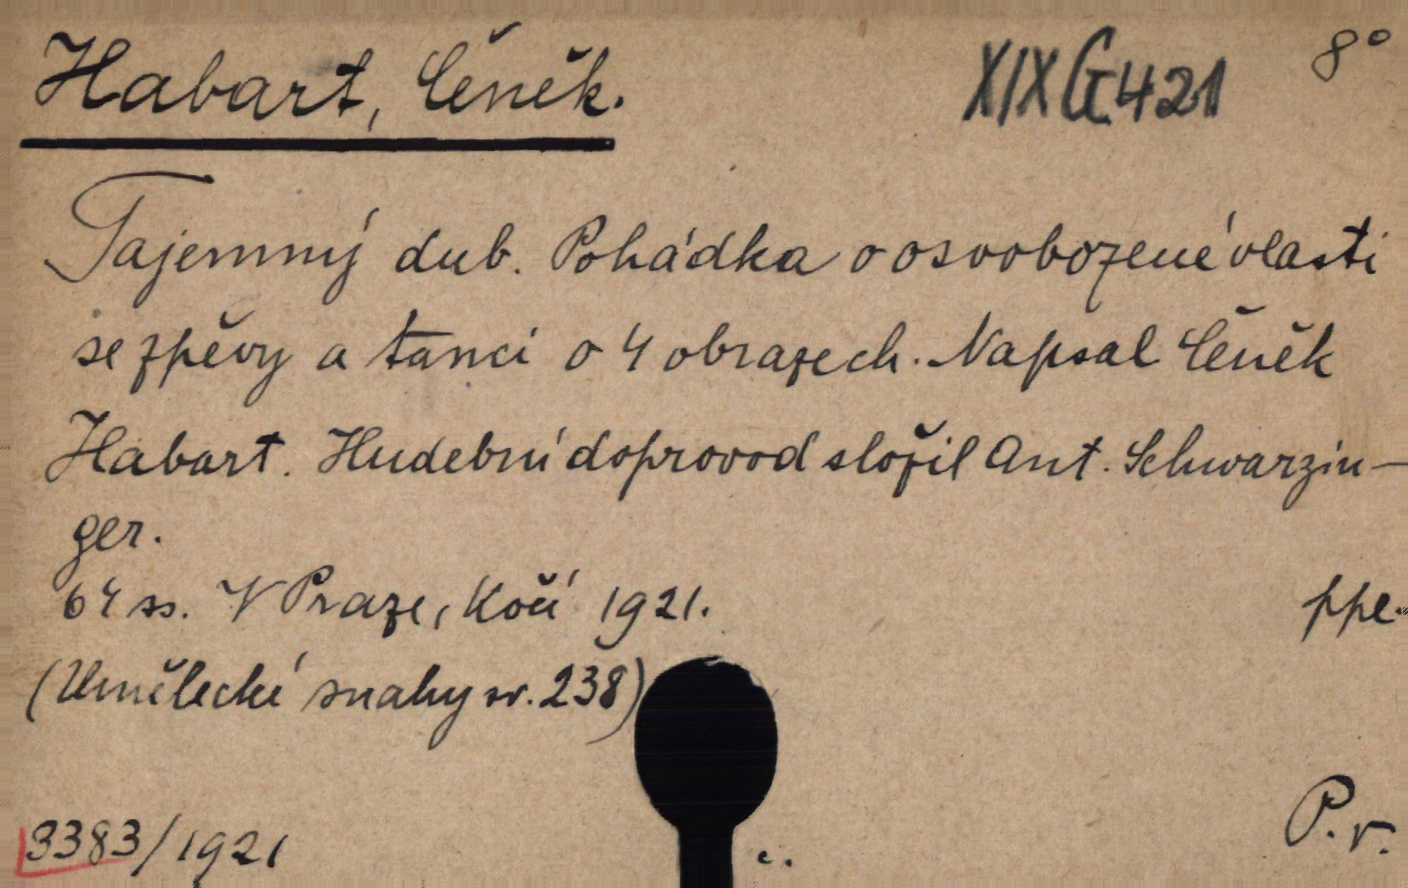 Habart, Čeněk.
XIX G 421
8°
Tajemný dub. Pohádka o osvobozené vlasti
se zpěvy a tanci o 4 obrazech. Napsal Čeněk
Habart. Hudební doprovod složil Ant. Schwarzin-
ger.
64 ss. V Praze, Kočí 1921.
ppe.
(Umělecké snahy sv. 238)
3383/1921
č.
P. r.